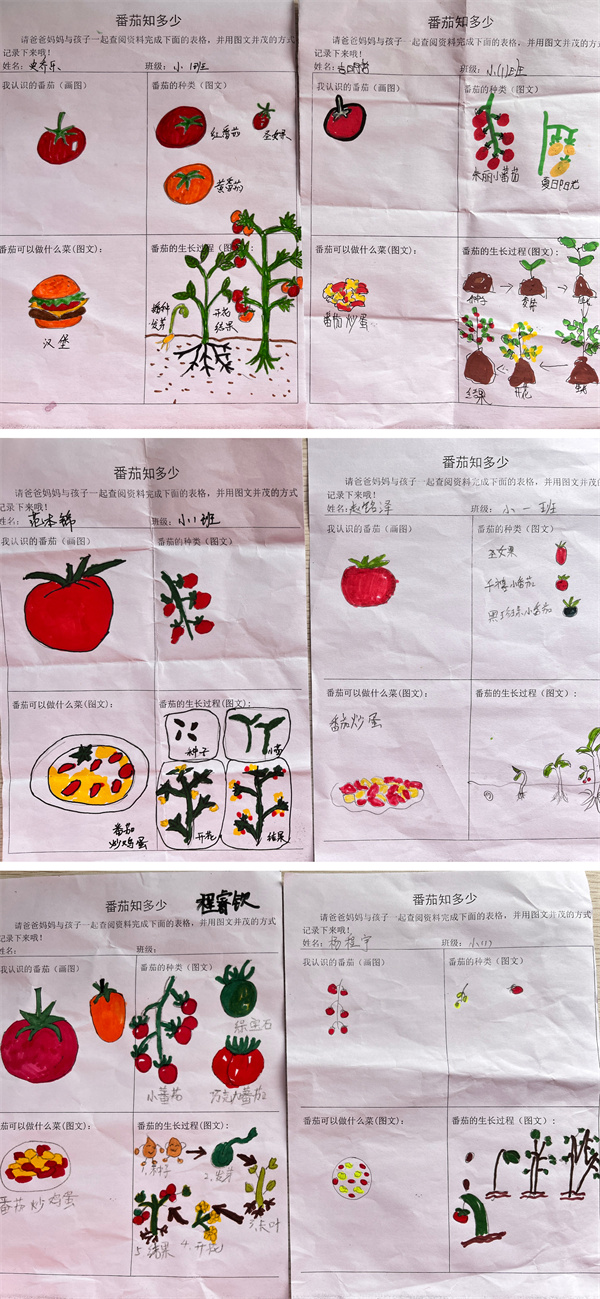 番茄知多少
请爸爸妈妈与孩子一起查阅资料完成下面的表格，并用图文并茂的方式
记录下来哦！
姓名：
班级：小1班
我认识的番茄（画图）
番茄的种类（图文）
红番茄
圣女果
黄番茄
番茄可以做什么菜(图文):
汉堡
番茄的生长过程(图文):
播种
发芽
开花
结果
番茄知多少
请爸爸妈妈与孩子一起查阅资料完成下面的表格，并用图文并茂的方式
记录下来哦！
姓名：
班级：小(1)班
我认识的番茄（画图）
番茄的种类（图文）
小番茄
夏日阳光
番茄可以做什么菜(图文):
番茄炒蛋
番茄的生长过程(图文):
种子
发芽
结果
开花
番茄知多少
请爸爸妈妈与孩子一起查阅资料完成下面的表格，并用图文并茂的方式
记录下来哦！
姓名：范本锦
班级：小1班
我认识的番茄（画图）
番茄的种类（图文）
番茄可以做什么菜(图文):
番茄
炒鸡蛋
番茄的生长过程(图文):
种子
小苗
开花
结果
番茄知多少
请爸爸妈妈与孩子一起查阅资料完成下面的表格，并用图文并茂的方
记录下来哦！
姓名：赵铭泽
班级：小一班
我认识的番茄（画图）
番茄的种类（图文）
圣女果
千禧小番茄
黑珍珠小番茄
番茄可以做什么菜(图文):
番茄炒蛋
番茄的生长过程（图文）:
番茄知多少
程睿钦
请爸爸妈妈与孩子一起查阅资料完成下面的表格，并用图文并茂的方式
记录下来哦！
姓名：
班级：
我认识的番茄（画图）
番茄的种类（图文）
绿宝石
小番茄
巧克力番茄
茄可以做什么菜(图文):
番茄炒鸡蛋
番茄的生长过程(图文):
1.种子
2.发芽
3.长叶
4.开花
5.结果
番茄知多少
请爸爸妈妈与孩子一起查阅资料完成下面的表格，并用图文并茂的方式
记录下来哦！
姓名：杨程宇
班级：小(1)
我认识的番茄（画图）
番茄的种类（图文）
番茄可以做什么菜(图文):
番茄的生长过程（图文）: